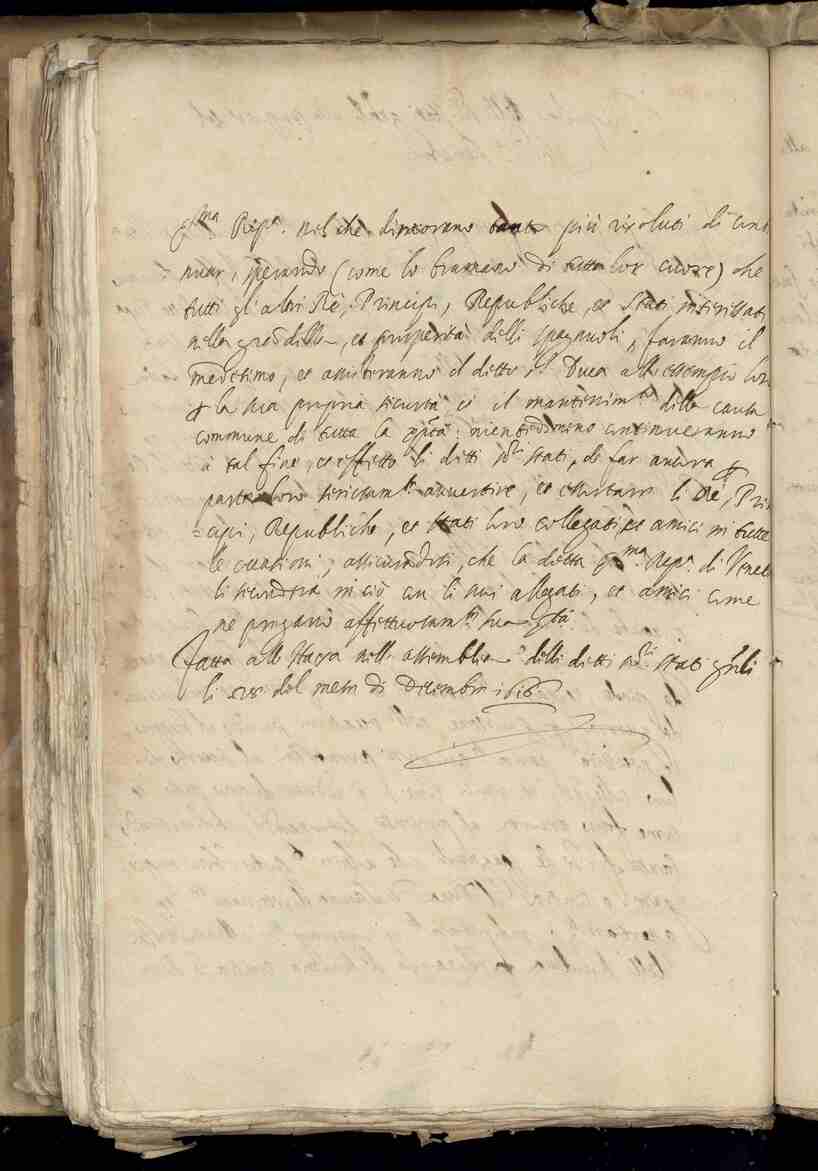 Ser.ma Rep.a. nel che dimorano tanto più risoluti di conti
nuar, sperando (come lo bramano di tutto lor cuore) che
tutti gl'altri Rè, Principi, Republiche, et Stati interessati
nella grandezza, et prosperità delli spagnuoli, faranno il
medesimo, et assisteranno il detto s.r Duca all'essempio loro
la sua propria sicurtà et il mantenim.to della causa
commune di tutta la nientedimeno continueranno
à tal fine, et effetto li detti ss.ri Stati, di far ancora
parte loro seriosam.te avvertire, et essortare li Rè, Prin
=cipi, Republiche, et Stati loro collegati, et amici in tutte
le occasioni, assicurandosi, che la detta Ser.ma Rep.a di Venetia
li seconderà in ciò con li suoi allegati, et amici come
ne pregano affettuosam.te sua Ser.tà
Fatta all'Haya nell'assemblea delli detti ss.ri Stati g.nrali
li del mese di Decembre 1616.